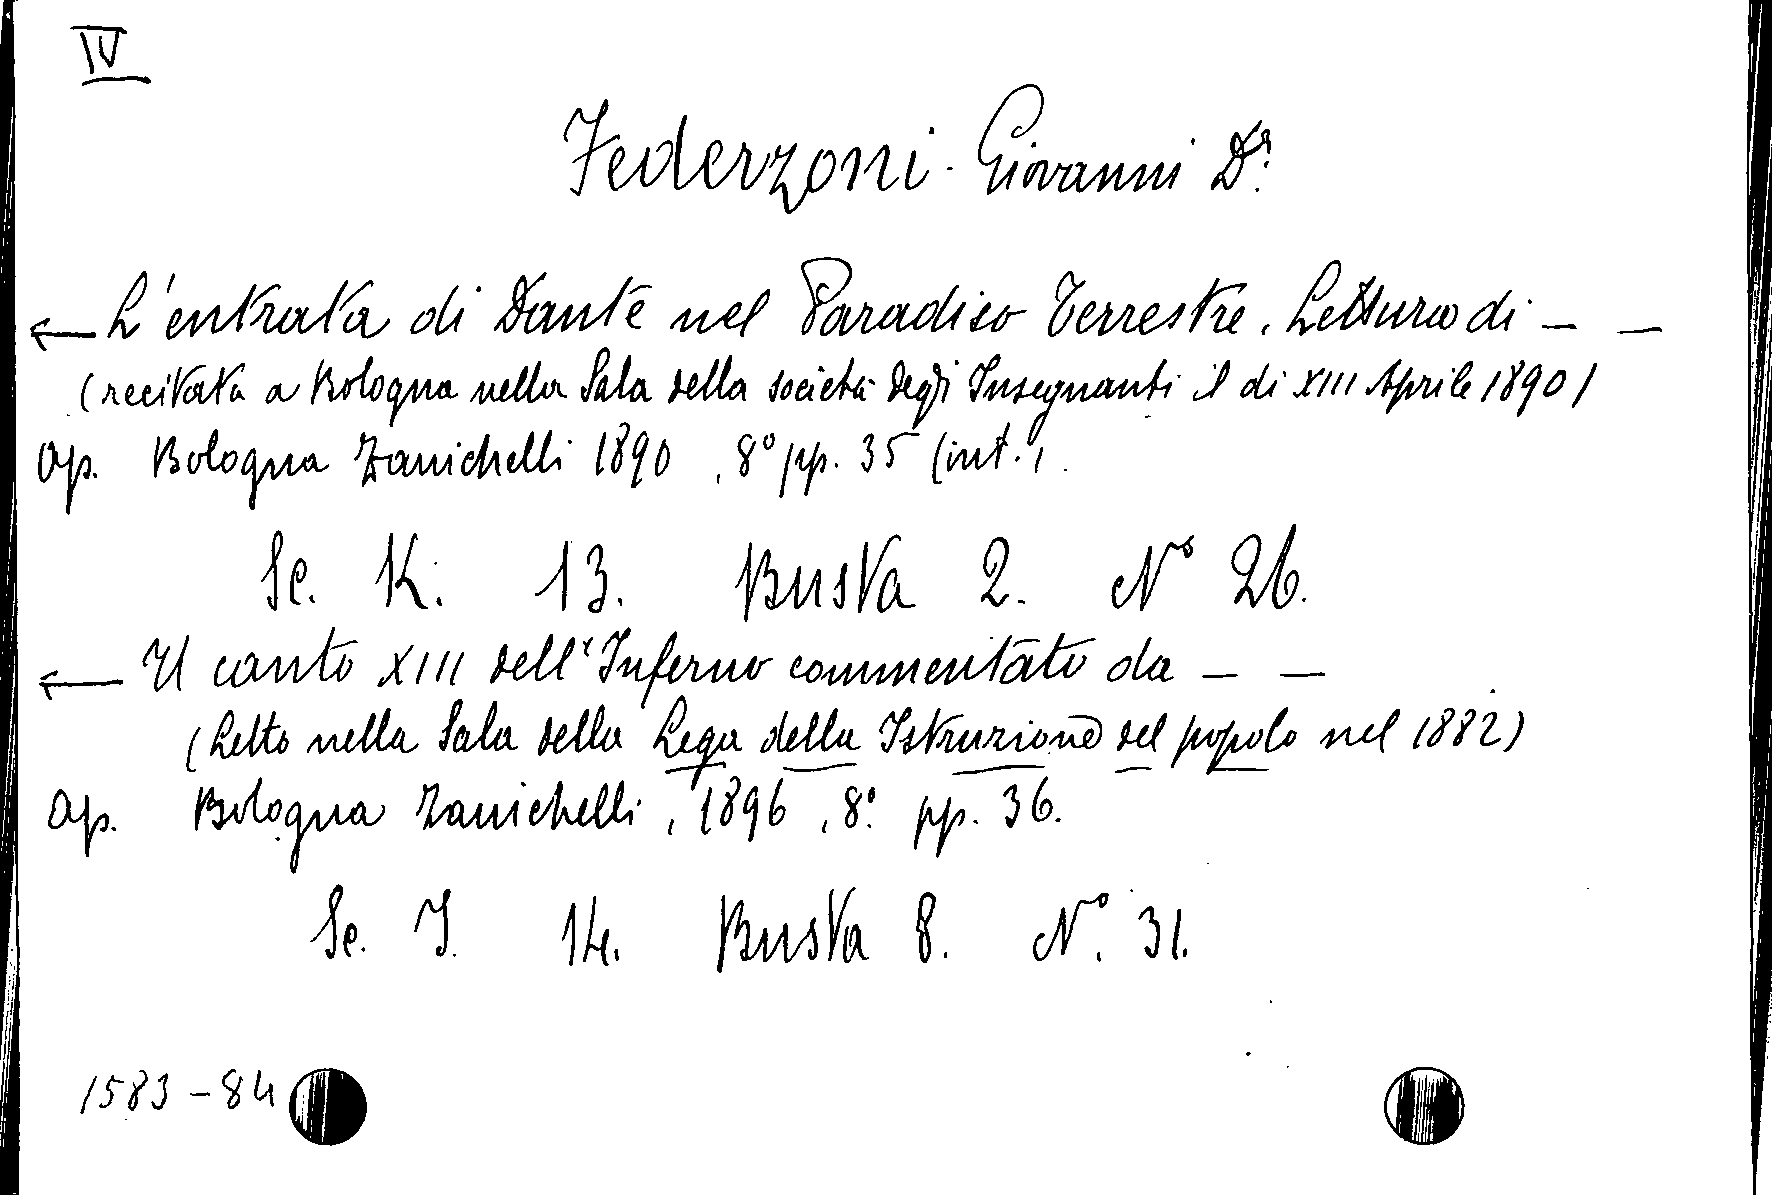 IV
Federzoni - Giovanni Dr.
← L'entrata di Dante nel Paradiso Terrestre. Lettura di — —
(recitata a Bologna nella Sala della società degli Insegnanti il di XIII Aprile 1890)
Op. Bologna Zanichelli 1890, 8° pp. 35 (int.)
Sc. K. 13. Busta 2. N° 26.
← Il canto XIII dell'Inferno commentato da — —
(Letto nella Sala della Lega della Istruzione del popolo nel 1882)
Op. Bologna Zanichelli, 1896, 8° pp. 36.
Sc. I. 14. Busta 8. N°. 31.
1583-84